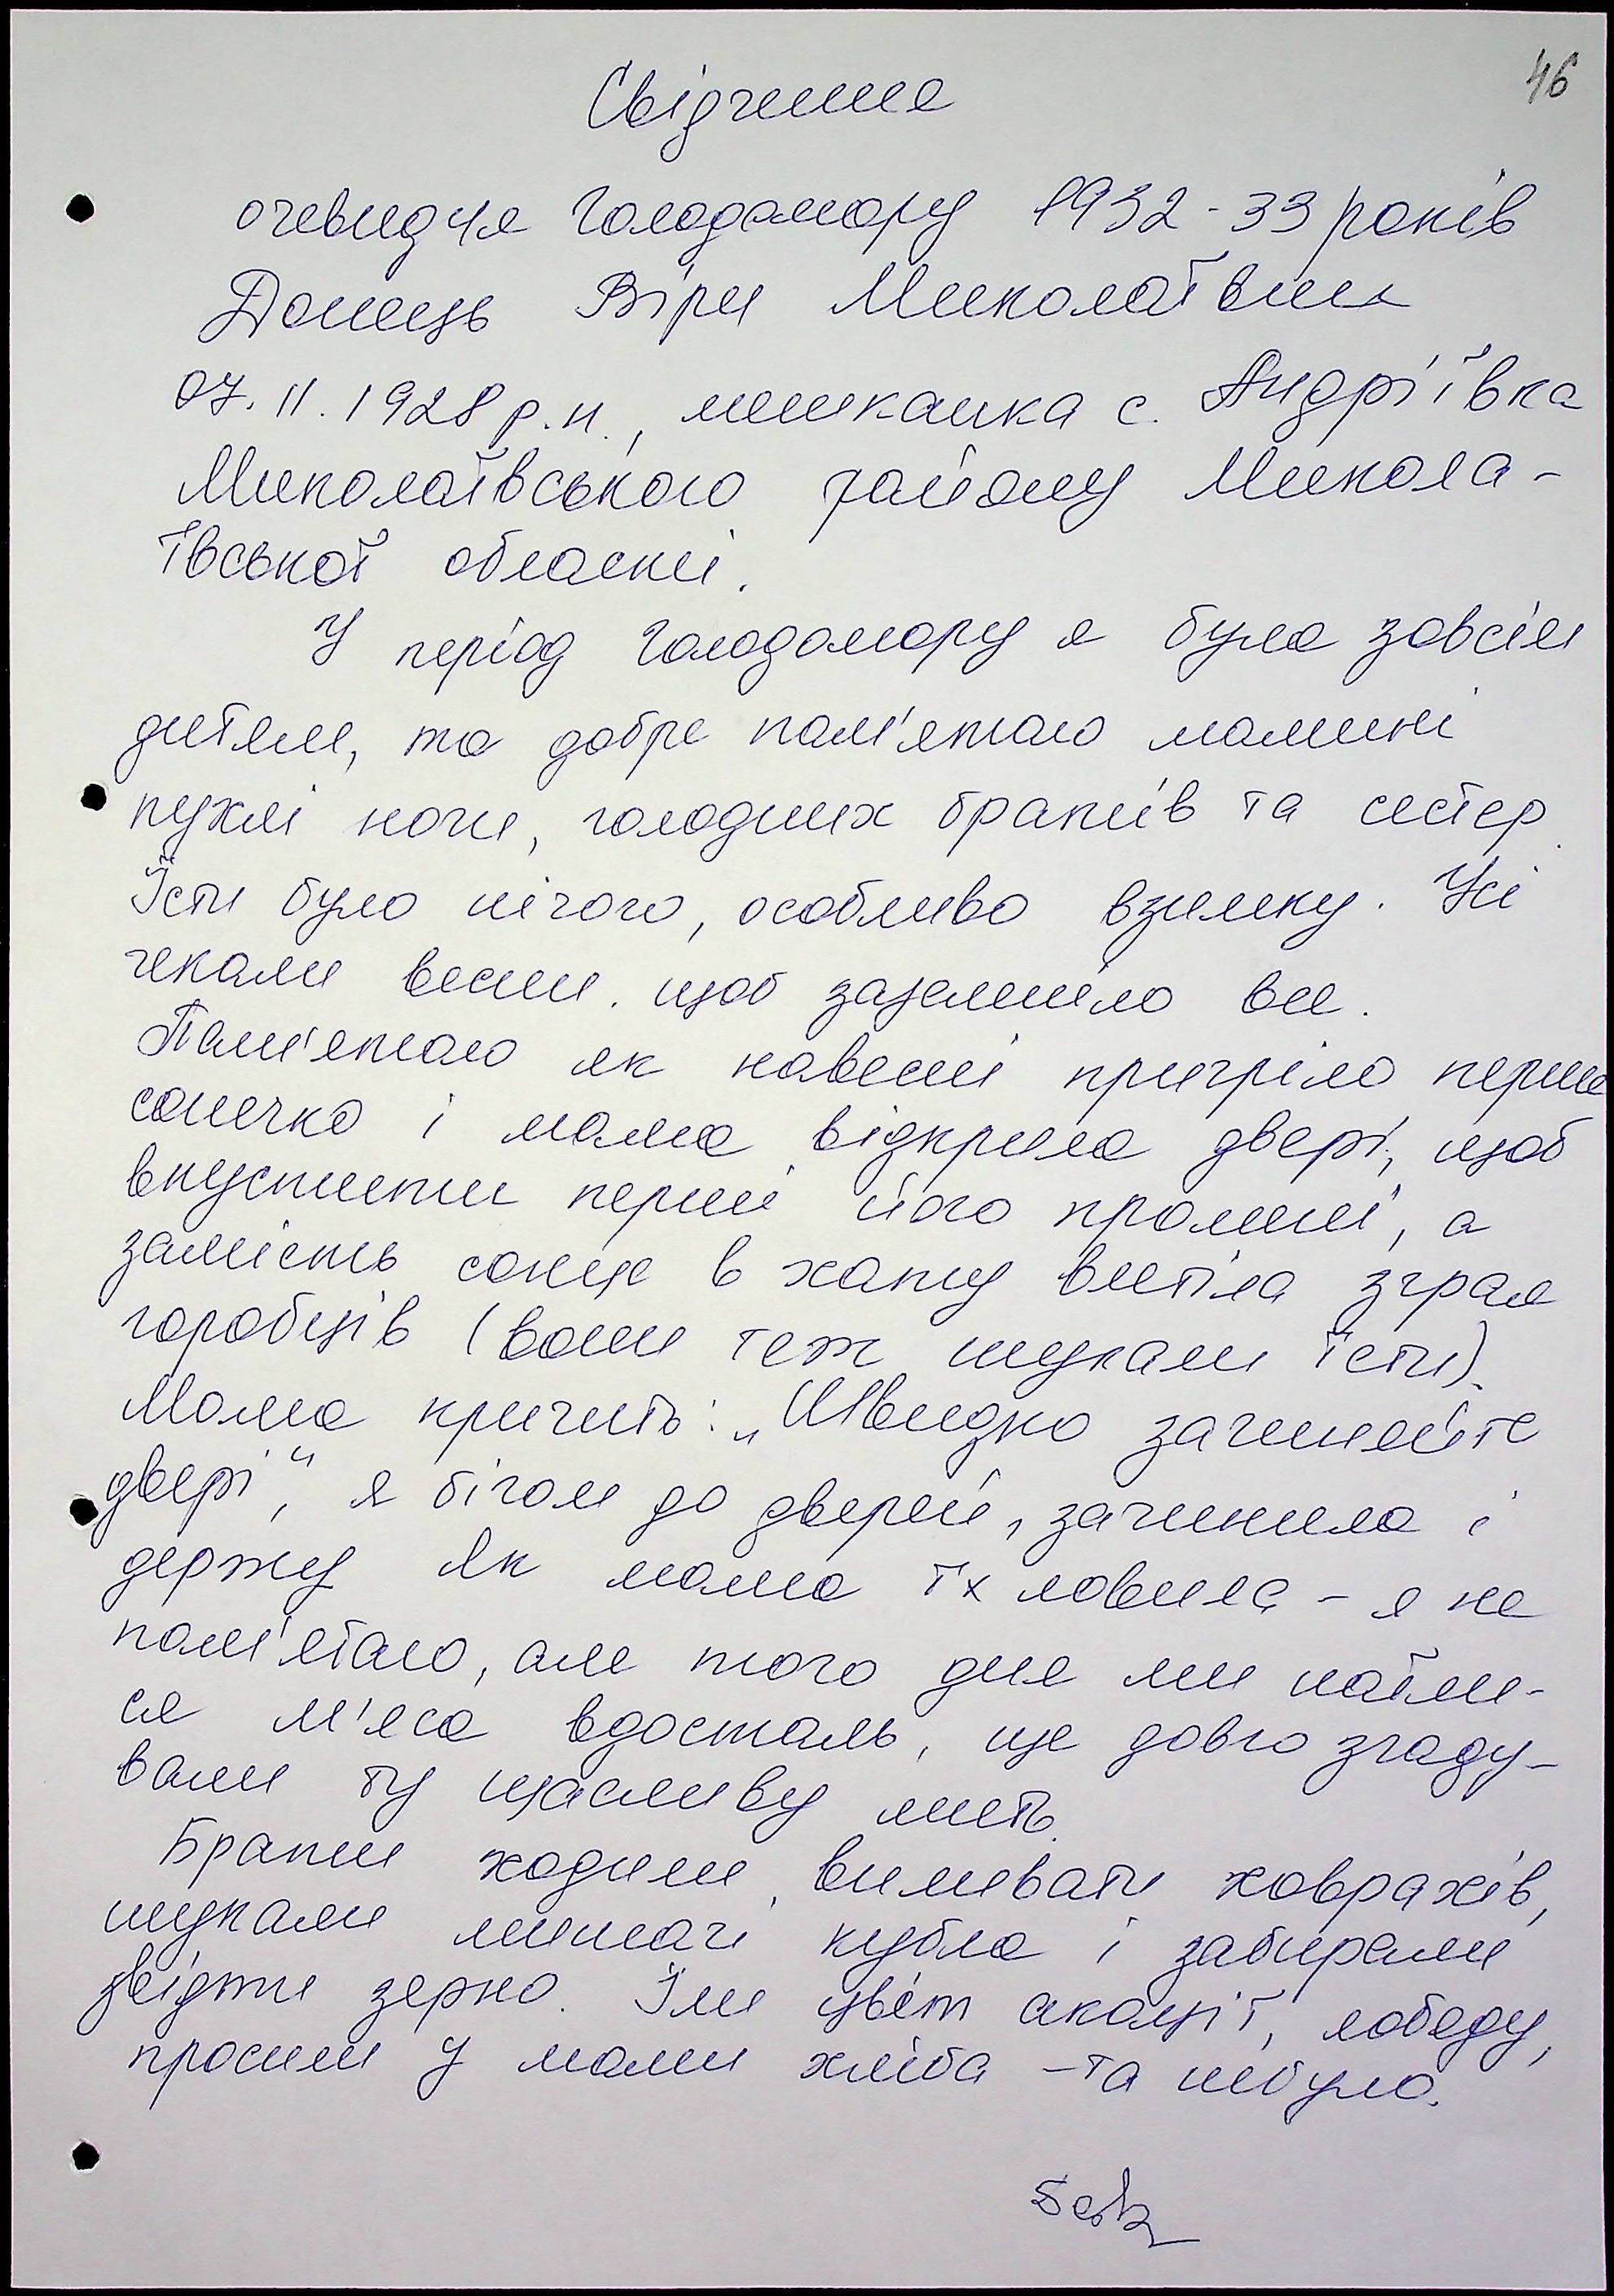 46
Свідчення
очевидця Голодомору 1932-33 років
Донець Віри Миколаївни
07.11.1928 р.н., мешканка с. Андріївка
Миколаївського району Микола-
ївської області.
У період Голодомору я була зовсім
дитям, та добре пам'ятаю мамині
пухлі ноги, голодних братів та сестер.
Їсти було нічого, особливо взимку. Усі
чекали весни. щоб зазеленіло все.
Пам'ятаю як навесні пригріло перше
сонечко і мама відкрила двері, щоб
впустити перші його промені, а
замість сонця в хату влетіла зграя
горобців (вони теж шукали їсти).
Мама кричить: „Швидко зачиняйте
двері“, я бігом до дверей, зачинила і
держу Як мама їх ловила - я не
пам'ятаю, але того дня ми наїли-
ся м'яса вдосталь, ще довго згаду-
вали ту щасливу мить.
Брати ходили виливати ховрахів,
шукали мишачі кубла і забирали
звідти зерно. Їли цвіт акації, лободу,
просили у мами хліба - та не було.